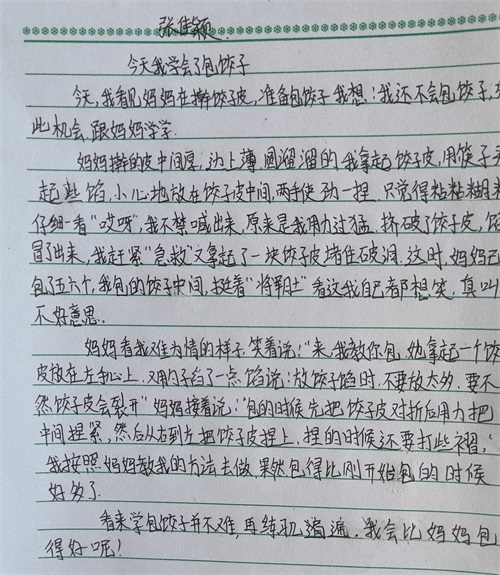 张佳颖
今天我学会了包饺子
今天,我看见妈妈在擀饺子皮,准备包饺子我想:我还不会包饺子,
此机会,跟妈妈学学.
妈妈擀的皮中间厚,边上薄圆溜溜的我拿起饺子皮,用筷子
起些馅,小心地放在饺子皮中间,两手使劲一捏.只觉得粘粘糊
仔细一看"哎呀",我不禁喊出来,原来是我用力过猛,挤破了饺子皮,馅
冒了出来,我赶紧"急救"又拿起了一块饺子皮堵住破洞.这时,妈妈已
包了五六个,我包的饺子中间,挺着"将军肚"看这我自己都想笑,真叫
不好意思.
妈妈看我难为情的样子,笑着说:"来,我教你包.她拿起一个饺
皮放在左手心上,又用勺子舀了一点馅说:放饺子馅时,不要放太多.要不
然饺子皮会裂开"妈妈接着说:"包的时候先把饺子皮对折后用力把
中间捏紧,然后从右到左把饺子皮捏上,捏的时候还要打些褶,"
我按照妈妈教我的方法去做,果然包得比刚开始包的时候
好多了.
看来学包饺子并不难,再练几遍,我会比妈妈包
得好呢!